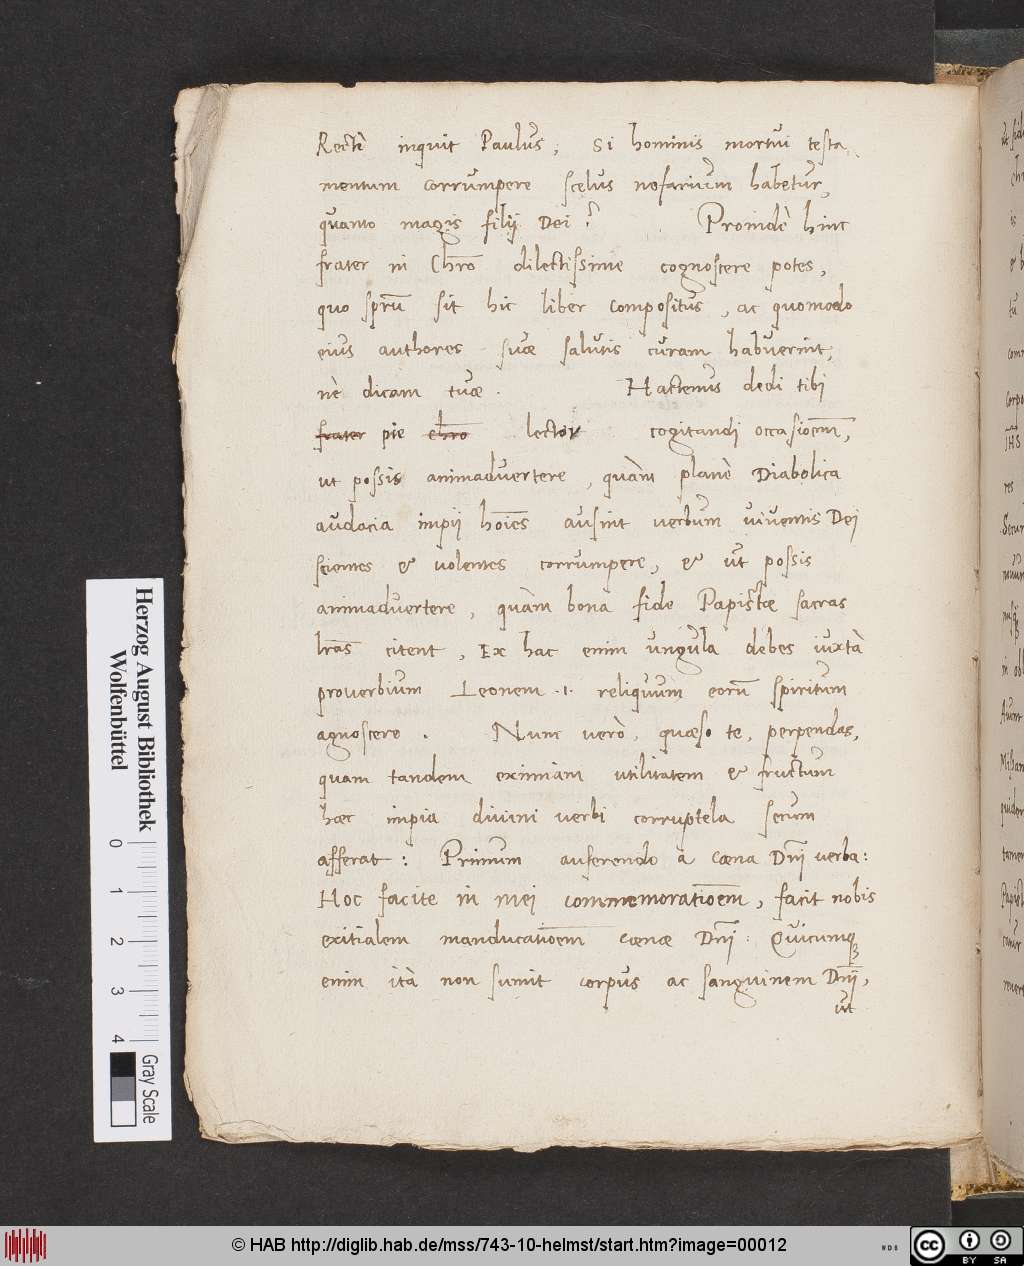 Rectè inquit Paulus, Si hominis mortui testa
mentum corrumpere scelus nefarium habetur,
quanto magis filij Dei? Proindè hinc
frater in Chr̄o dilectissime cognoscere potes,
quo sprū sit hic liber compositus, ac quomodo
eius authores suæ salutis curam habuerint,
nè dicam tuæ. Hactenus dedi tibi
frater pie chr̄o lector cogitandi occasiōem,
ut possis animaduertere, quàm planè Diabolica
audacia impij hoīes ausint verbum viventis Dei
scientes & volentes corrumpere, & ut possis
animaduertere, quàm bona fide Papistæ sacras
lr̄as citent, Ex hac enim ungula debes iuxtà
proverbium Leonem .i. reliquum eorū spiritum
agnoscere. Nunc verò, quæso te, perpendas,
quam tandem eximiam utilitatem & fructum
hæc impia divini verbi corruptela secum
afferat: Primum auferendo à cœna Dn̄i verba:
Hoc facite in mei commemoratiōem, facit nobis
exitialem manducatiōem cœnæ Dn̄i: Quicumq;
enim ità non sumit corpus ac sanguinem Dn̄i,
ut
Herzog August Bibliothek
Wolfenbüttel
0 1 2 3 4
Gray Scale
© HAB http://diglib.hab.de/mss/743-10-helmst/start.htm?image=00012
cc BY SA